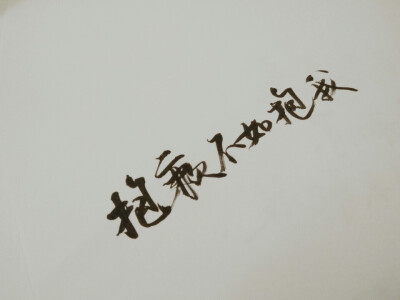 抱歉不如抱